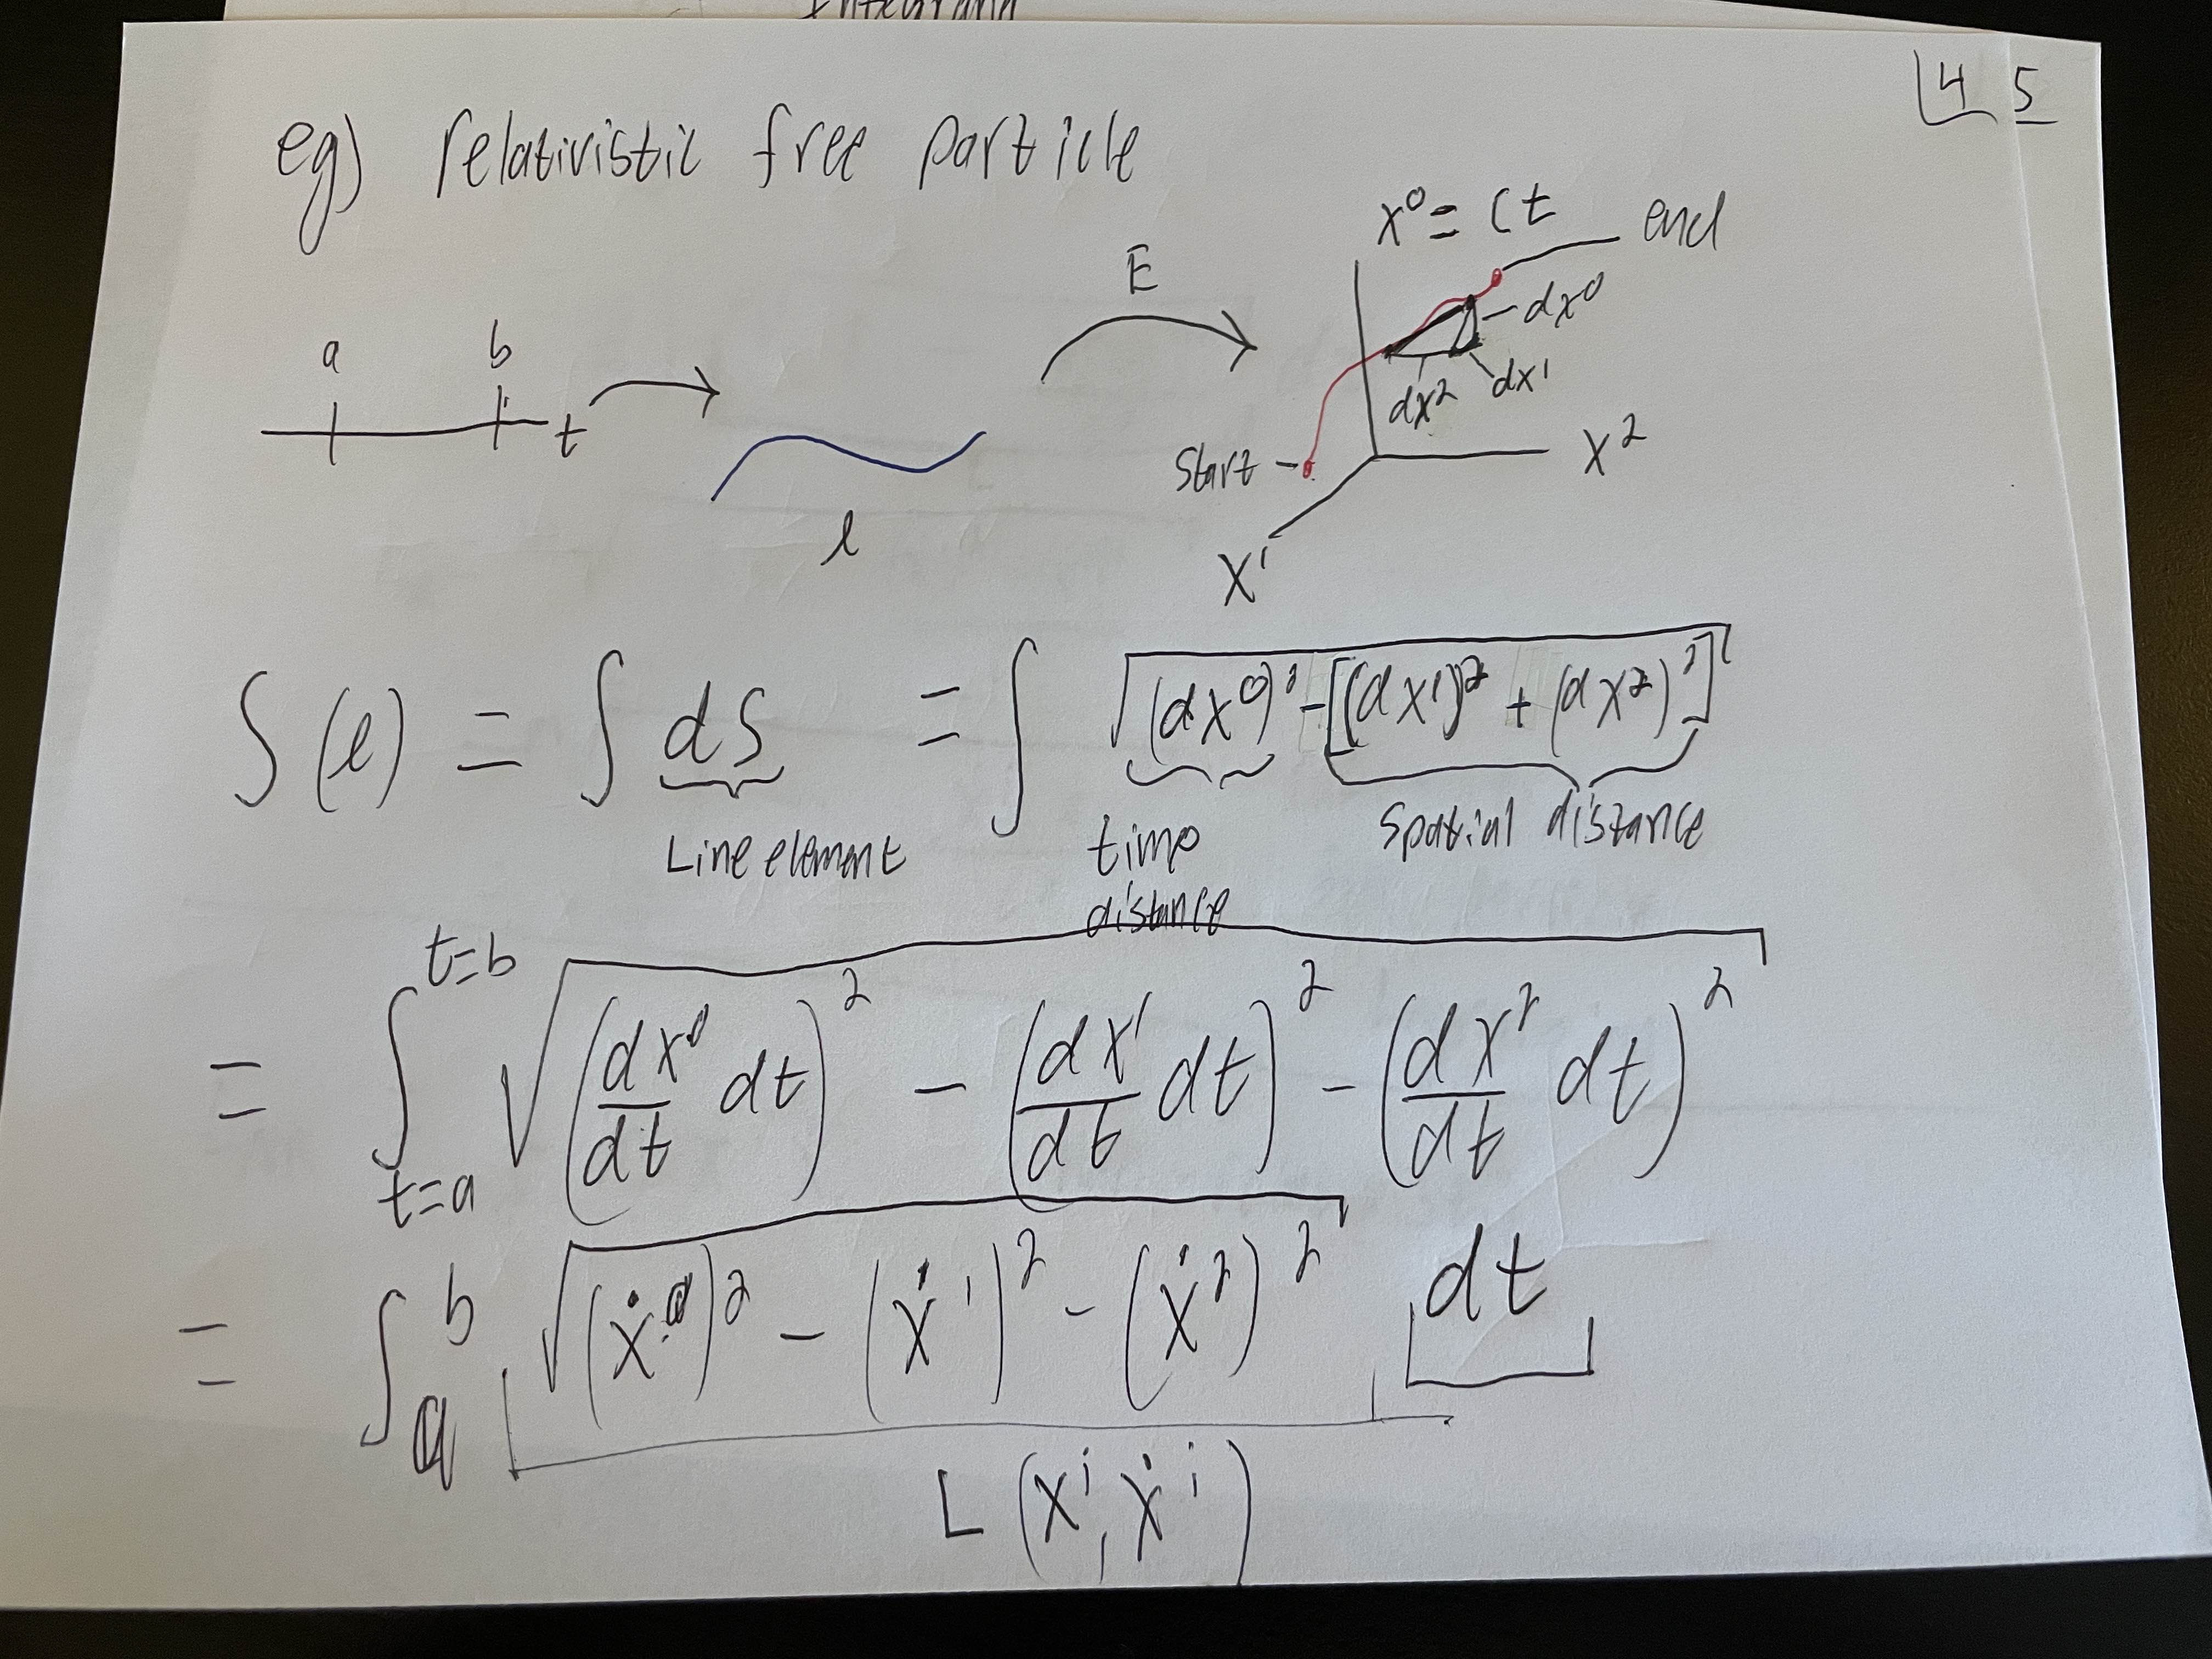 Integrand
4 5
eg) relativistic free particle
x⁰ = ct end
E
a b
t
l
dx⁰
dx¹
dx²
Start
x²
x¹
S(l) = ∫ ds = ∫ √((dx⁰)² - [(dx¹)² + (dx²)²])
Line element time distance Spatial distance
= ∫_{t=a}^{t=b} √((dx⁰/dt dt)² - (dx¹/dt dt)² - (dx²/dt dt)²)
= ∫_a^b √((ẋ⁰)² - (ẋ¹)² - (ẋ²)²) dt
L(xⁱ, ẋⁱ)